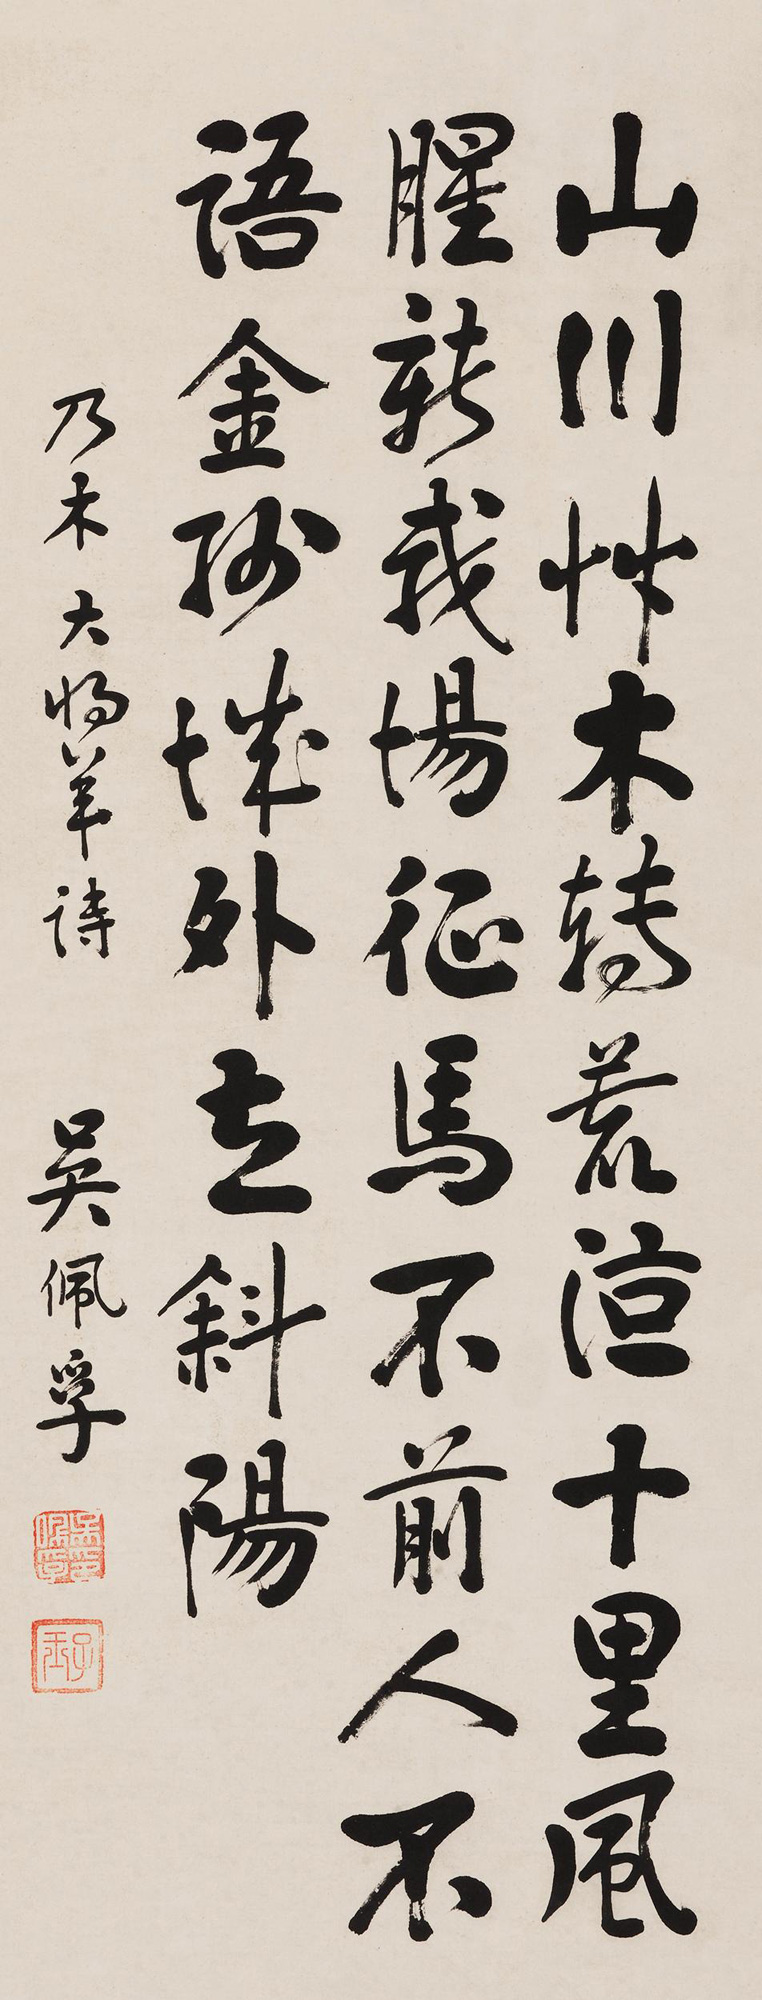 山川艸木轉荒涼十里風
腥新戰場征馬不前人不
語金州城外立斜陽
乃木大將軍詩 吳佩孚
吳佩孚印
子玉